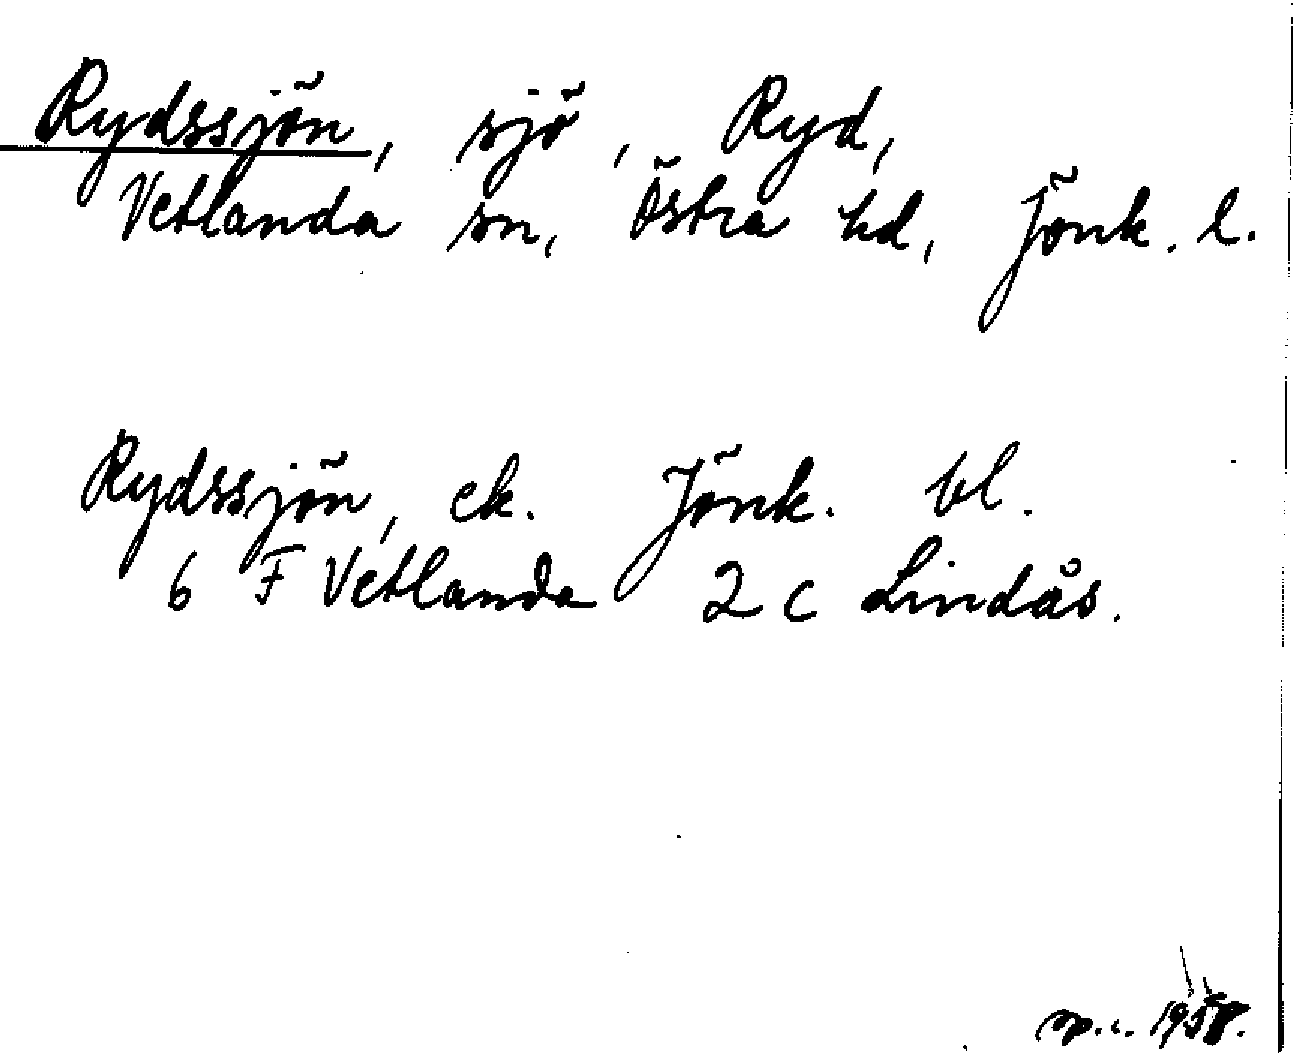 Rydssjön, sjö, Ryd,
Vetlanda sn, Östra hd, Jönk. l.
Rydssjön, ek. Jönk. bl.
6 F Vetlanda 2 c Lindås.
1958.